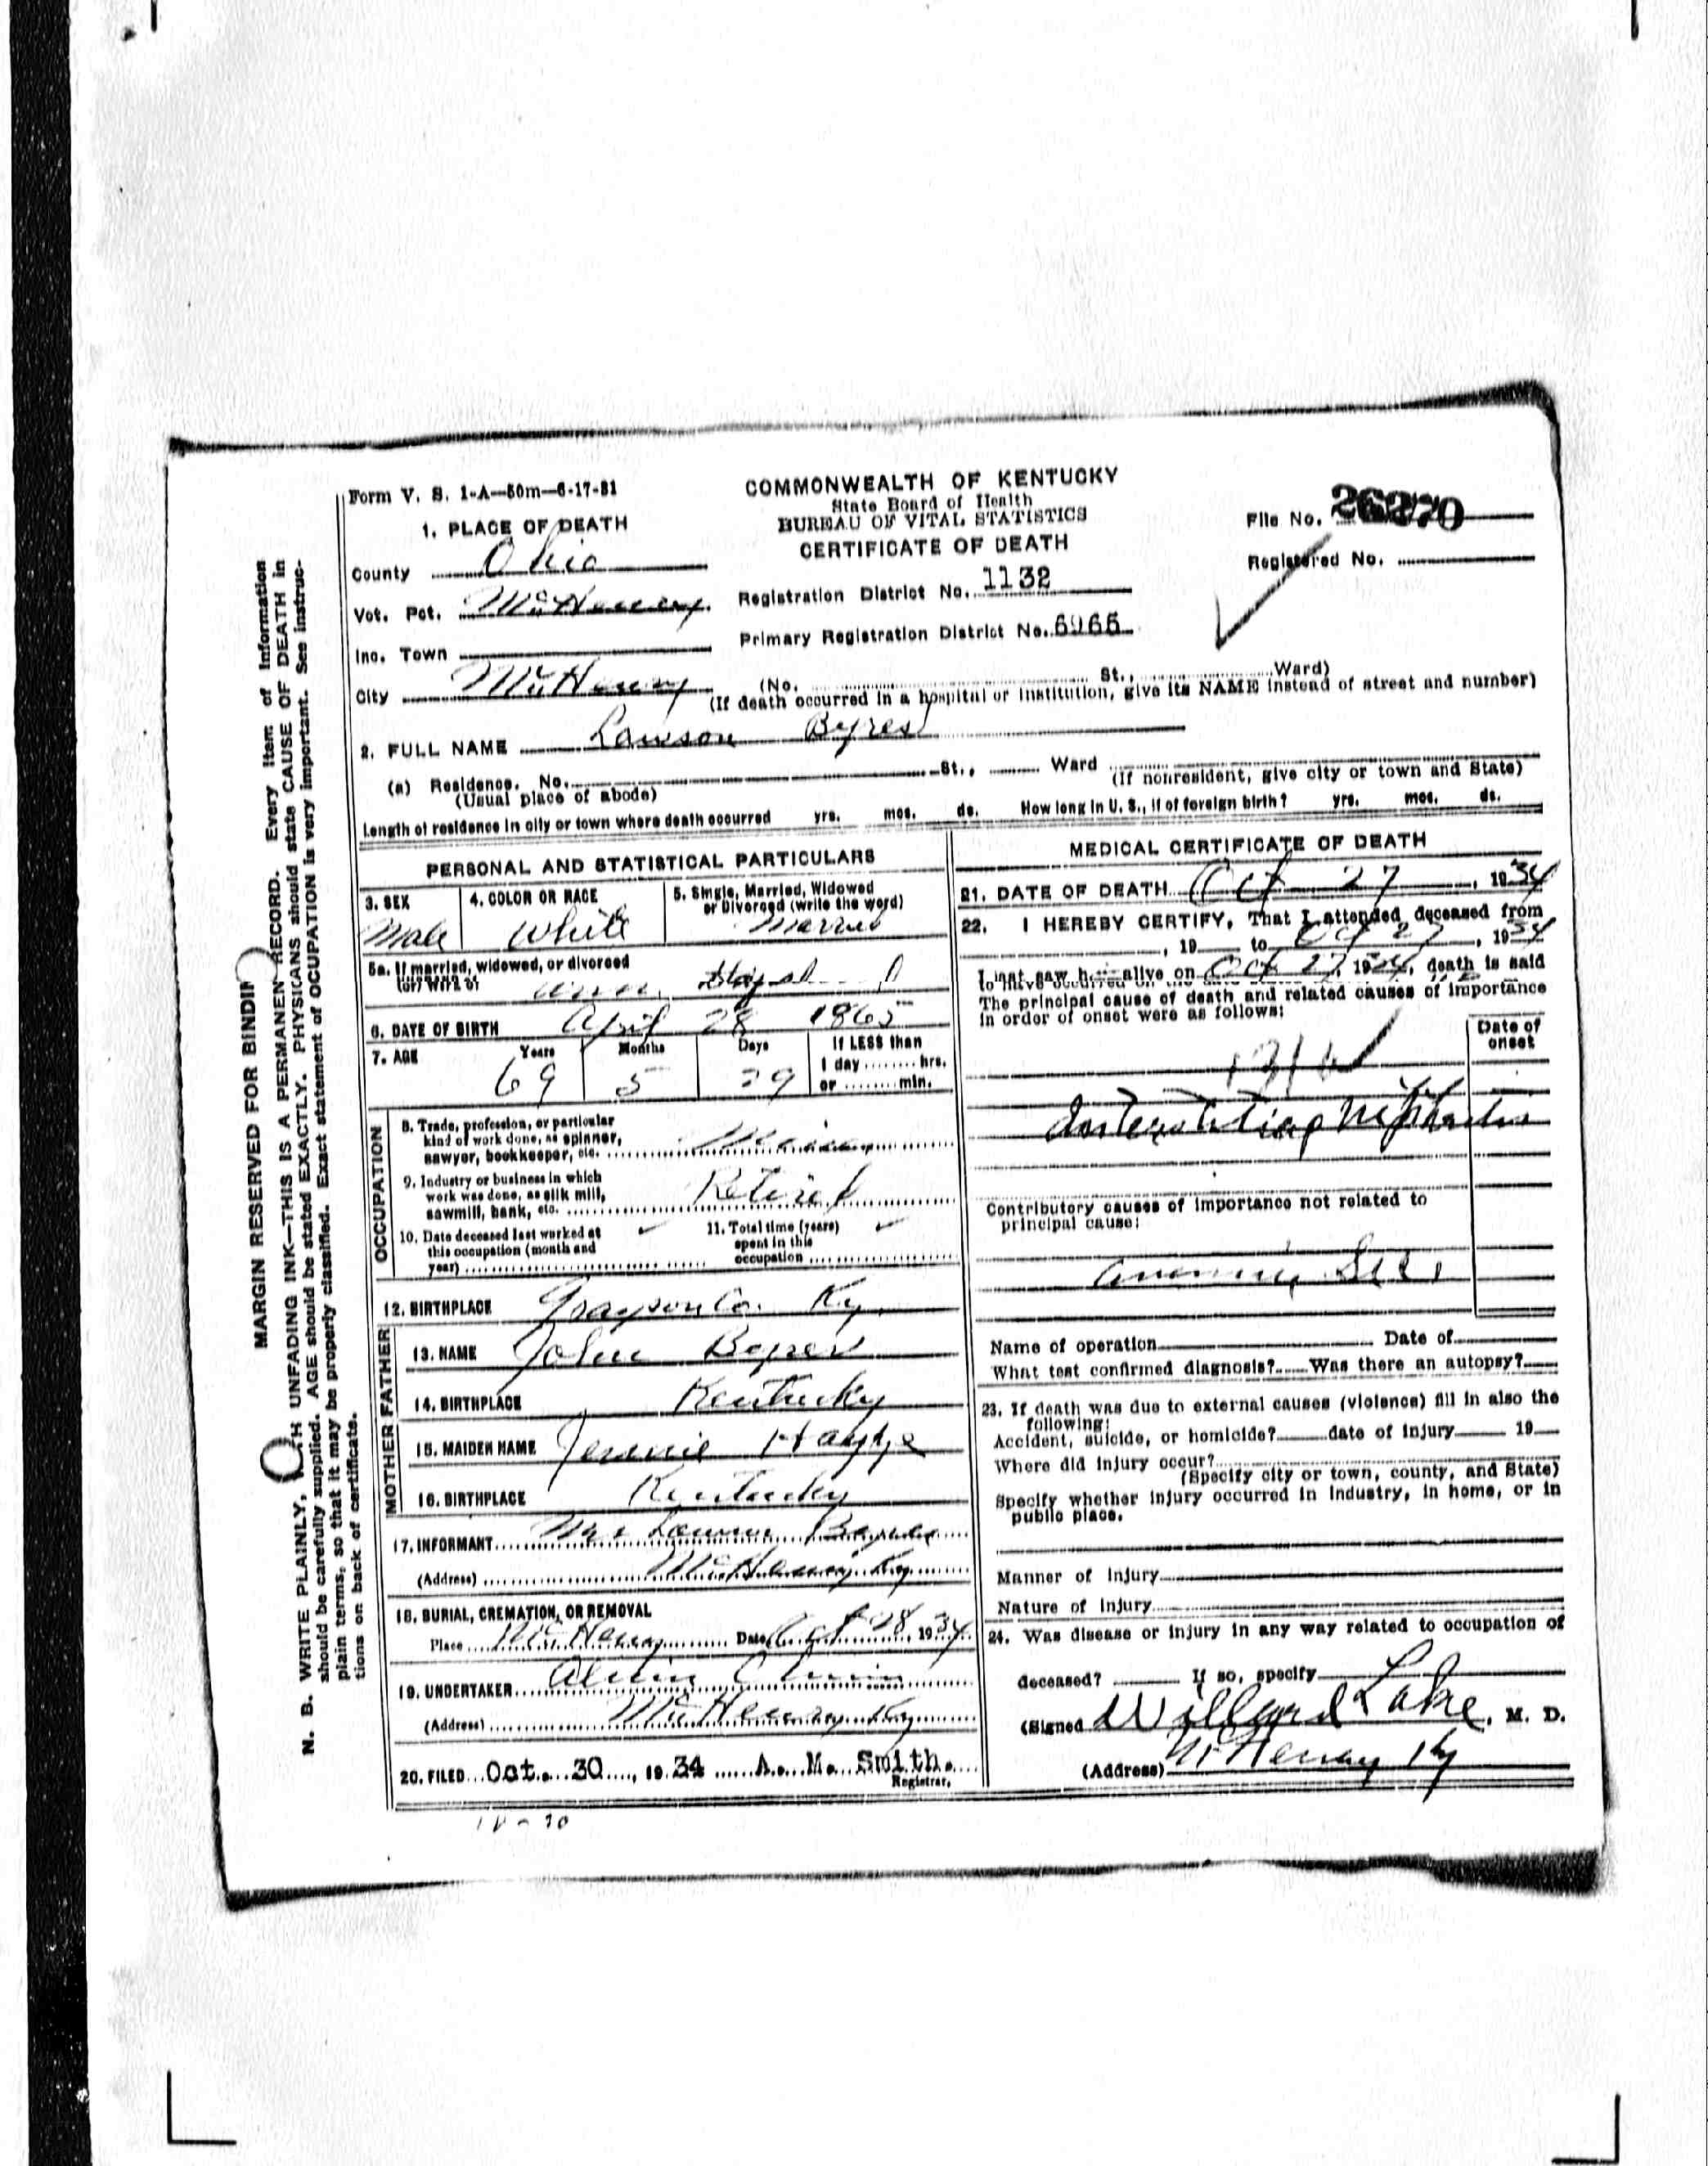 Form V. S. 1-A—50m—6-17-31
COMMONWEALTH OF KENTUCKY
State Board of Health
BUREAU OF VITAL STATISTICS
CERTIFICATE OF DEATH
File No. 26270
Registered No.
1. PLACE OF DEATH
County Ohio
Vot. Pct. McHenry
Inc. Town
City McHenry
Registration District No. 1132
Primary Registration District No. 6966
(No. St., Ward)
(If death occurred in a hospital or institution, give its NAME instead of street and number)
2. FULL NAME Lawson Byres
(a) Residence. No. St., Ward
(Usual place of abode)
(If nonresident, give city or town and State)
Length of residence in city or town where death occurred yrs. mos. ds. How long in U. S., if of foreign birth? yrs. mos. ds.
PERSONAL AND STATISTICAL PARTICULARS
3. SEX
Male
4. COLOR OR RACE
White
5. Single, Married, Widowed
or Divorced (write the word)
Married
5a. If married, widowed, or divorced
HUSBAND of
(or) WIFE of
6. DATE OF BIRTH April 28 1865
7. AGE
Years 69
Months 5
Days 29
If LESS than
1 day hrs.
or min.
OCCUPATION
8. Trade, profession, or particular
kind of work done, as spinner,
sawyer, bookkeeper, etc.
9. Industry or business in which
work was done, as silk mill,
sawmill, bank, etc. Retired
10. Date deceased last worked at
this occupation (month and
year)
11. Total time (years)
spent in this
occupation
12. BIRTHPLACE Grayson Co. Ky.
FATHER
13. NAME John Byres
14. BIRTHPLACE Kentucky
MOTHER
15. MAIDEN NAME Jennie
16. BIRTHPLACE Kentucky
17. INFORMANT
(Address) McHenry Ky
18. BURIAL, CREMATION, OR REMOVAL
Place McHenry Date Oct 28, 1934
19. UNDERTAKER
(Address) McHenry Ky
20. FILED Oct. 30, 1934 A. M. Smith.
Registrar.
MEDICAL CERTIFICATE OF DEATH
21. DATE OF DEATH Oct 27, 1934
22. I HEREBY CERTIFY, That I attended deceased from
, 19 to Oct 27, 1934
I last saw h alive on Oct 27, 1934, death is said
to have occurred on the date
The principal cause of death and related causes of importance
in order of onset were as follows:
Date of
onset
131
Interstitial Nephritis
Contributory causes of importance not related to
principal cause:
Name of operation Date of
What test confirmed diagnosis? Was there an autopsy?
23. If death was due to external causes (violence) fill in also the
following:
Accident, suicide, or homicide? date of injury 19
Where did injury occur?
(Specify city or town, county, and State)
Specify whether injury occurred in industry, in home, or in
public place.
Manner of injury
Nature of injury
24. Was disease or injury in any way related to occupation of
deceased? If so, specify
(Signed Willard Lake, M. D.
(Address) McHenry Ky
MARGIN RESERVED FOR BINDING
N. B. WRITE PLAINLY, WITH UNFADING INK—THIS IS A PERMANENT RECORD. Every item of information
should be carefully supplied. AGE should be stated EXACTLY. PHYSICIANS should state CAUSE OF DEATH in
plain terms, so that it may be properly classified. Exact statement of OCCUPATION is very important. See instruc-
tions on back of certificate.